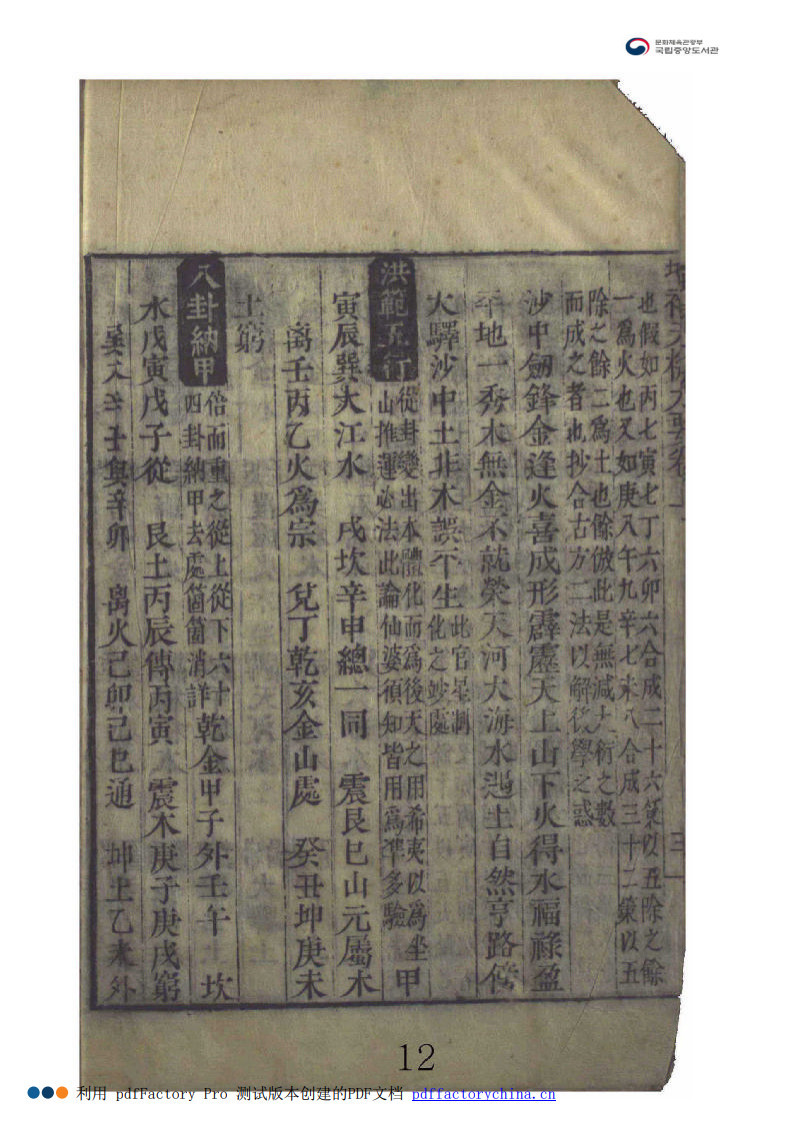 문화체육관광부
국립중앙도서관
也假如丙七寅七丁六卯六合成二十六策以五除之餘
一爲火也又如庚八午九辛七未八合成三十二策以五
除之餘二爲土也餘倣此是無減大衍之數
而成之者也抄合古方二法以解後學之惑
沙中劔鋒金逢火喜成形霹靂天上山下火得水福祿盈
平地一秀木無金不就榮天河大海水遇土自然亨路傍
大驛沙中土非木誤平生
此官星制
化之妙處
洪範五行
從卦變出本體化而爲後天之用希夷以爲坐
山推運必法此論仙婆須知皆用爲準多驗
甲
寅辰巽大江水 戌坎辛申總一同 震艮巳山元屬木
离壬丙乙火爲宗 兌丁乾亥金山處 癸丑坤庚未
土窮
八卦納甲
倍而重之從上從下六十
四卦納甲去處箇箇消詳
乾金甲子外壬午 坎
水戊寅戊子從 艮土丙辰傳丙寅 震木庚子庚戌窮
巽 辛卯 离火己卯己巳通 坤土乙未外
12
利用 pdfFactory Pro 测试版本创建的PDF文档 pdffactorychina.cn